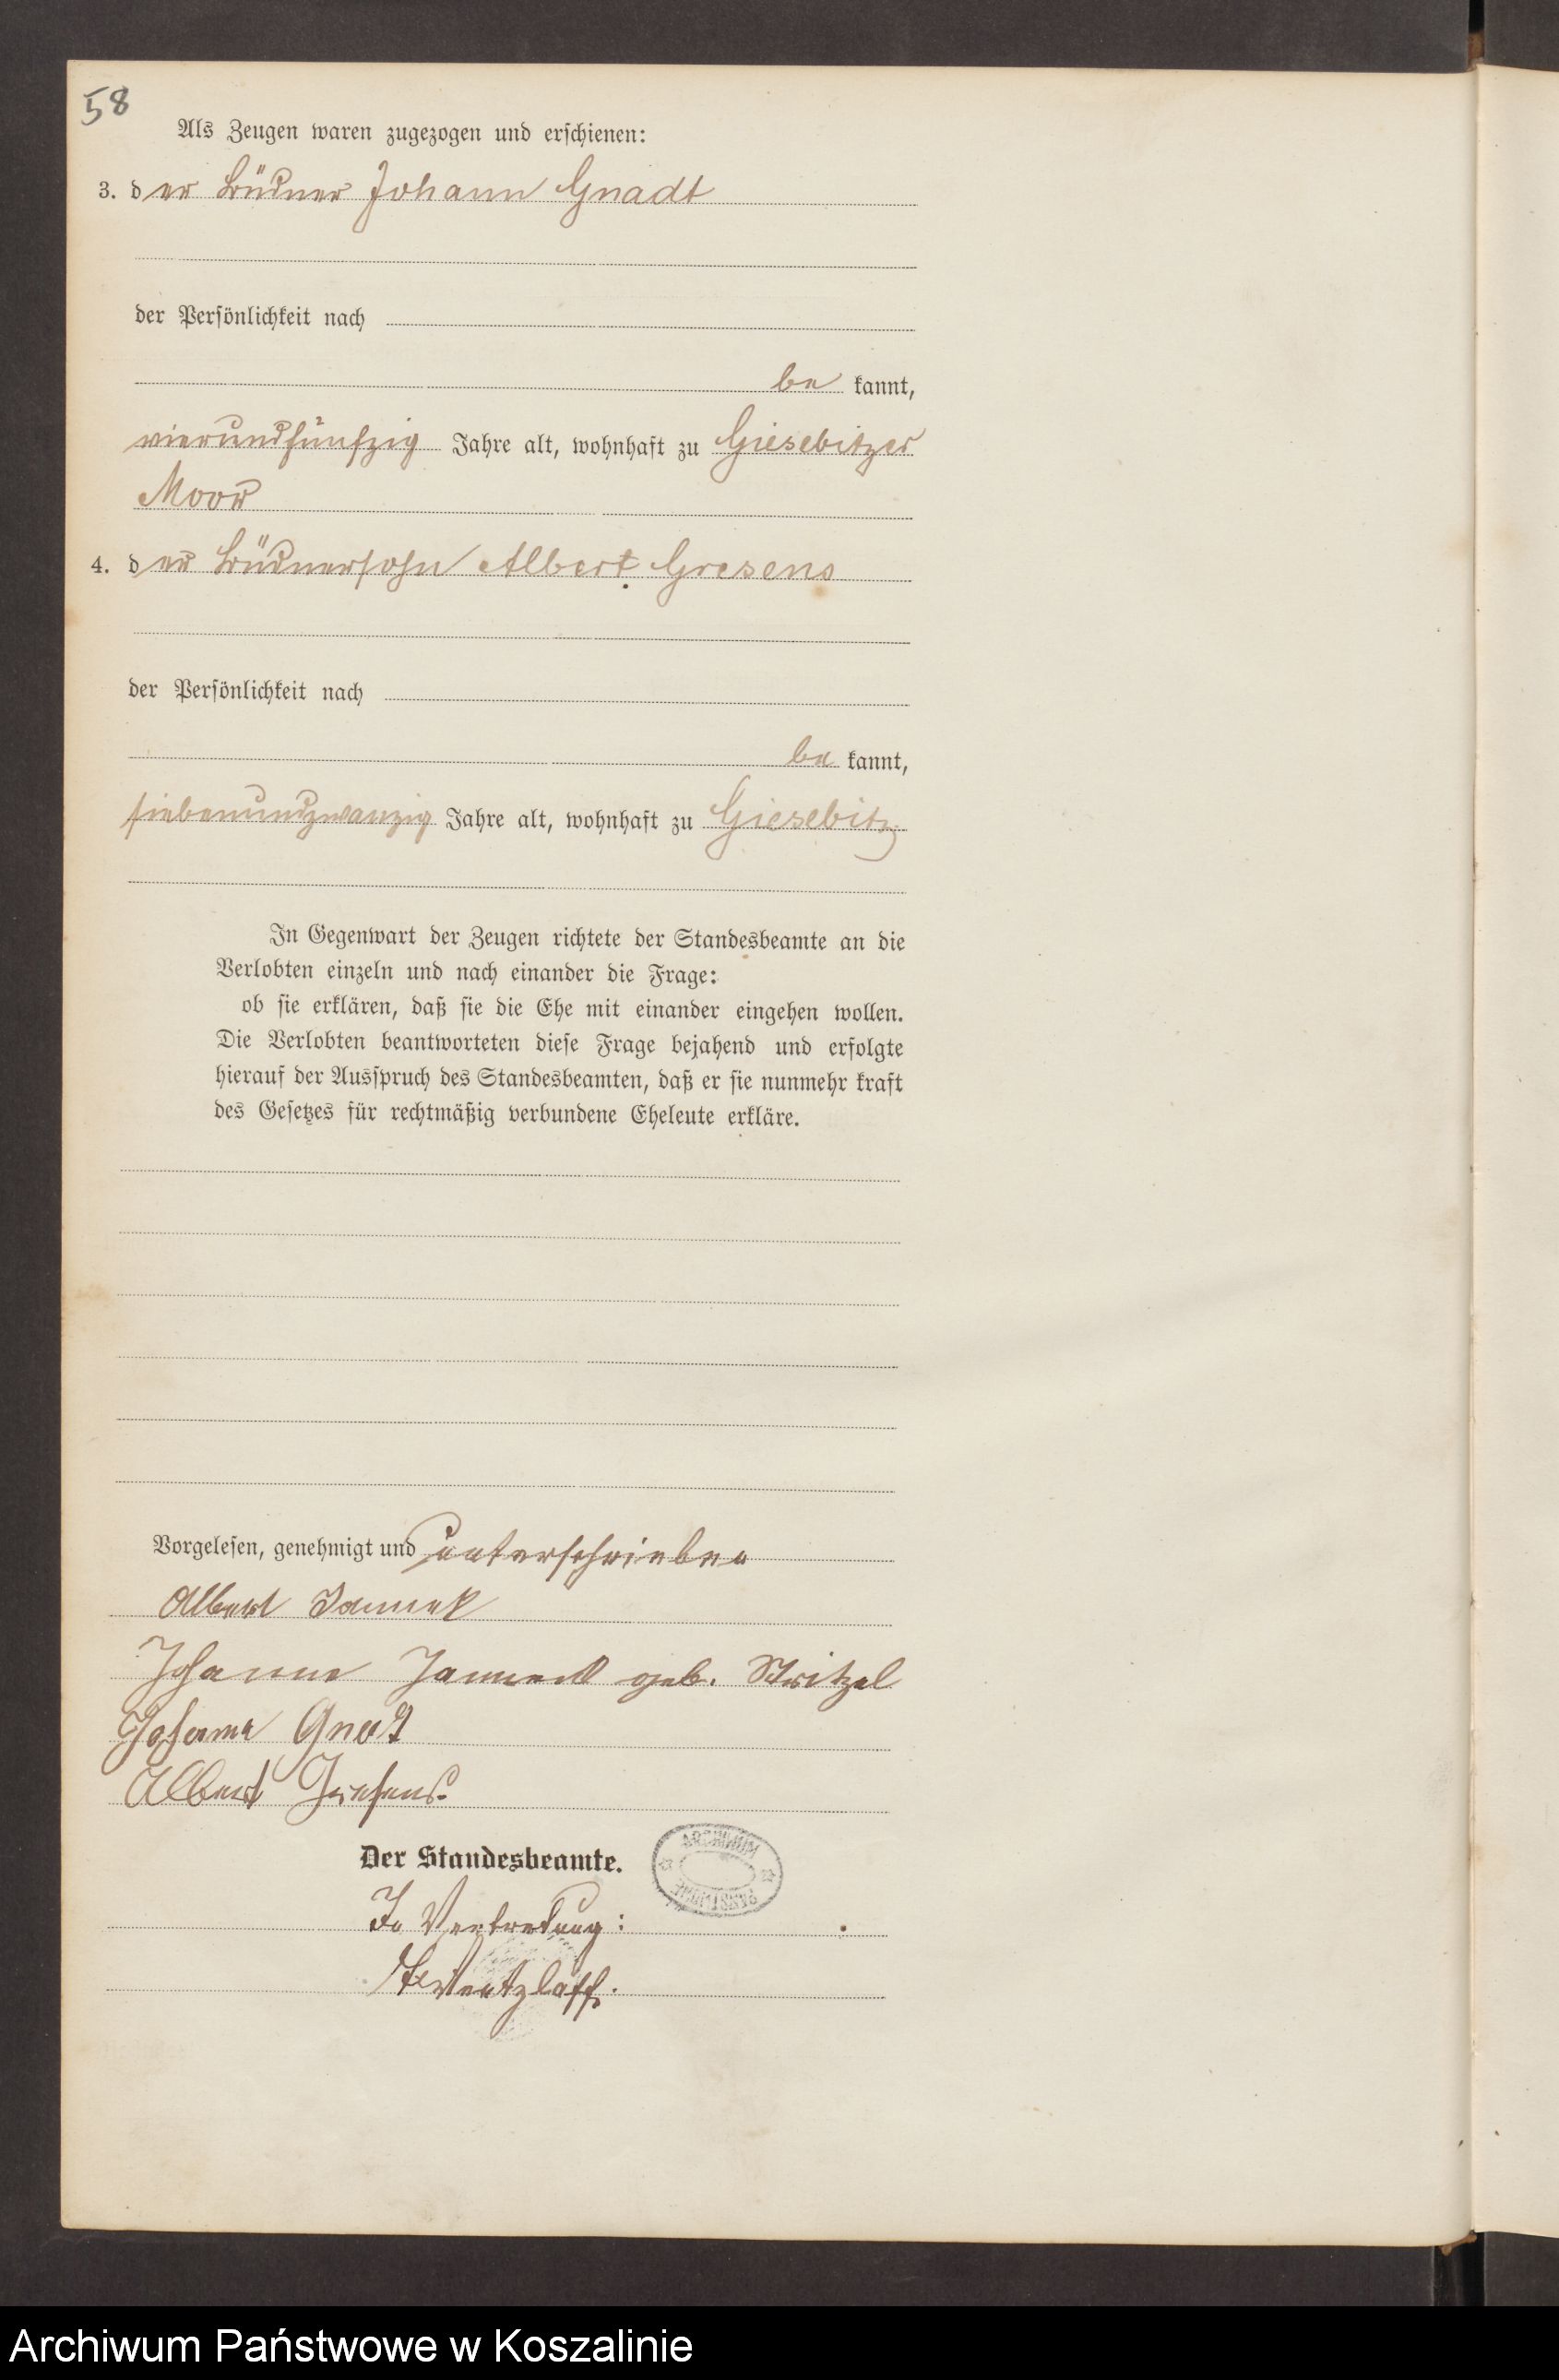 58
Als Zeugen waren zugezogen und erschienen:
3. der Büdner Johann Gnadt
der Persönlichkeit nach
be kannt,
vierundfünfzig Jahre alt, wohnhaft zu Giesebitzer
Moor
4. der Büdnersohn Albert Gresens
der Persönlichkeit nach
be kannt,
siebenundzwanzig Jahre alt, wohnhaft zu Giesebitz
In Gegenwart der Zeugen richtete der Standesbeamte an die
Verlobten einzeln und nach einander die Frage:
ob sie erklären, daß sie die Ehe mit einander eingehen wollen.
Die Verlobten beantworteten diese Frage bejahend und erfolgte
hierauf der Ausspruch des Standesbeamten, daß er sie nunmehr kraft
des Gesetzes für rechtmäßig verbundene Eheleute erkläre.
Vorgelesen, genehmigt und unterschrieben
Albert
Johanne geb.
Johann
Albert Gresens.
Der Standesbeamte.
ARCHIWUM
In Vertretung: